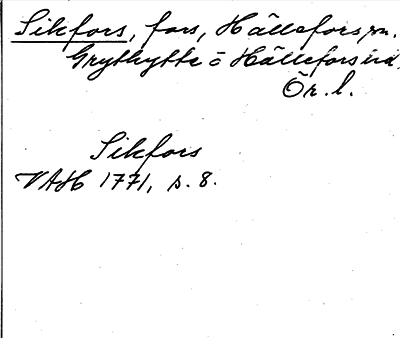 Sikfors, fors, Hällefors sn.
Grythytte o Hällefors hd
Ör. l.
Sikfors
VAH 1771, s. 8.